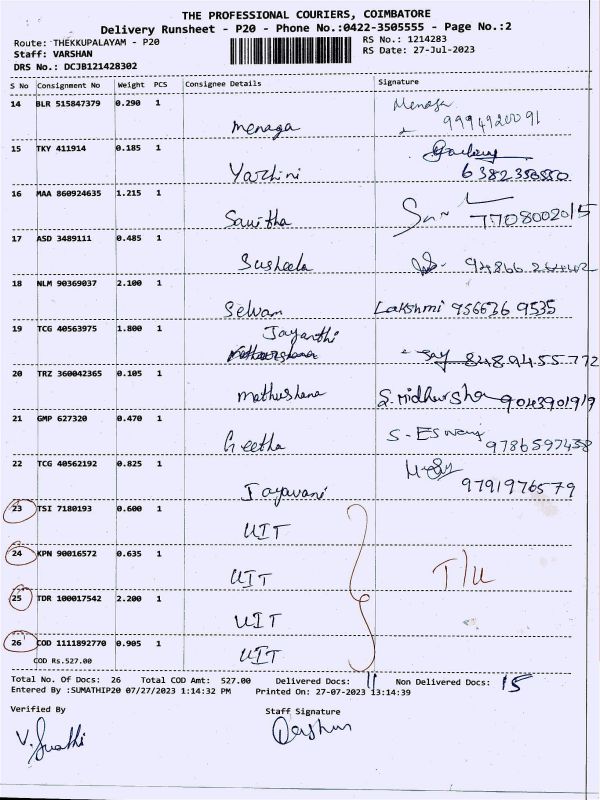 THE PROFESSIONAL COURIERS, COIMBATORE
Delivery Runsheet - P20 - Phone No.:0422-3505555 - Page No.:2
Route: THEKKUPALAYAM - P20
RS No.: 1214283
Staff: VARSHAN
RS Date: 27-Jul-2023
DRS No.: DCJB121428302
S No Consignment No Weight PCS Consignee Details Signature
14 BLR 515847379 0.290 1 Menaga Menaga
9994920091
15 TKY 411914 0.185 1
Yazhini 6382350550
16 MAA 860924635 1.215 1
Savitha 7708002015
17 ASD 3489111 0.485 1
Susheela
18 NLM 90369037 2.100 1
Selvan Lakshmi 9566269535
19 TCG 40563975 1.800 1
Jayanthi
Jay 8489455772
20 TRZ 360042365 0.105 1
Mathushana S. Midhursha 9043901919
21 GMP 627320 0.470 1
Geetha 9786597458
22 TCG 40562192 0.825 1
Jayavani 9791976579
23 TSI 7180193 0.600 1
UIT
24 KPN 90016572 0.635 1
UIT T/U
25 TDR 100017542 2.200 1
UIT
26 COD 1111892770 0.905 1
UIT
COD Rs.527.00
Total No. Of Docs: 26 Total COD Amt: 527.00 Delivered Docs: 11 Non Delivered Docs: 15
Entered By :SUMATHIP20 07/27/2023 1:14:32 PM Printed On: 27-07-2023 13:14:39
Verified By Staff Signature